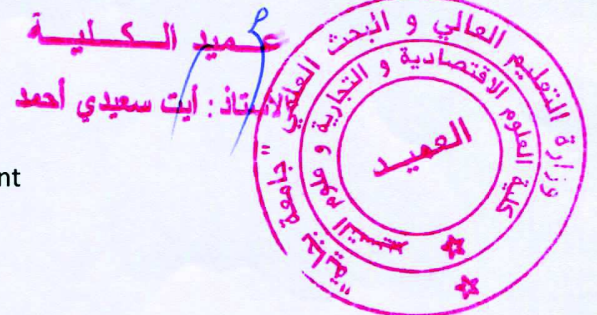 عميد الكلية
الأستاذ : أيت سعيدي أحمد
وزارة التعليم العالي و البحث العلمي "جامعة بجاية"
كلية العلوم الاقتصادية و التجارية و علوم التسيير
العميد
nt